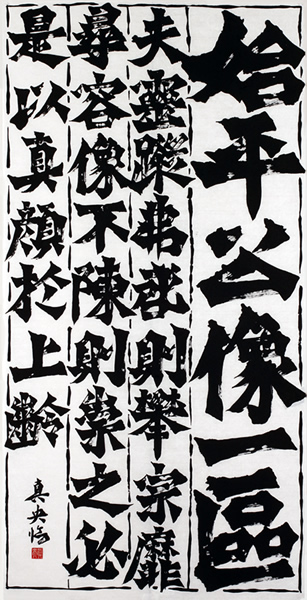 始平公像一區
夫靈蹤弗啓則攀宗靡
尋容像不陳則崇之必
是以真顔於上齡
真央臨